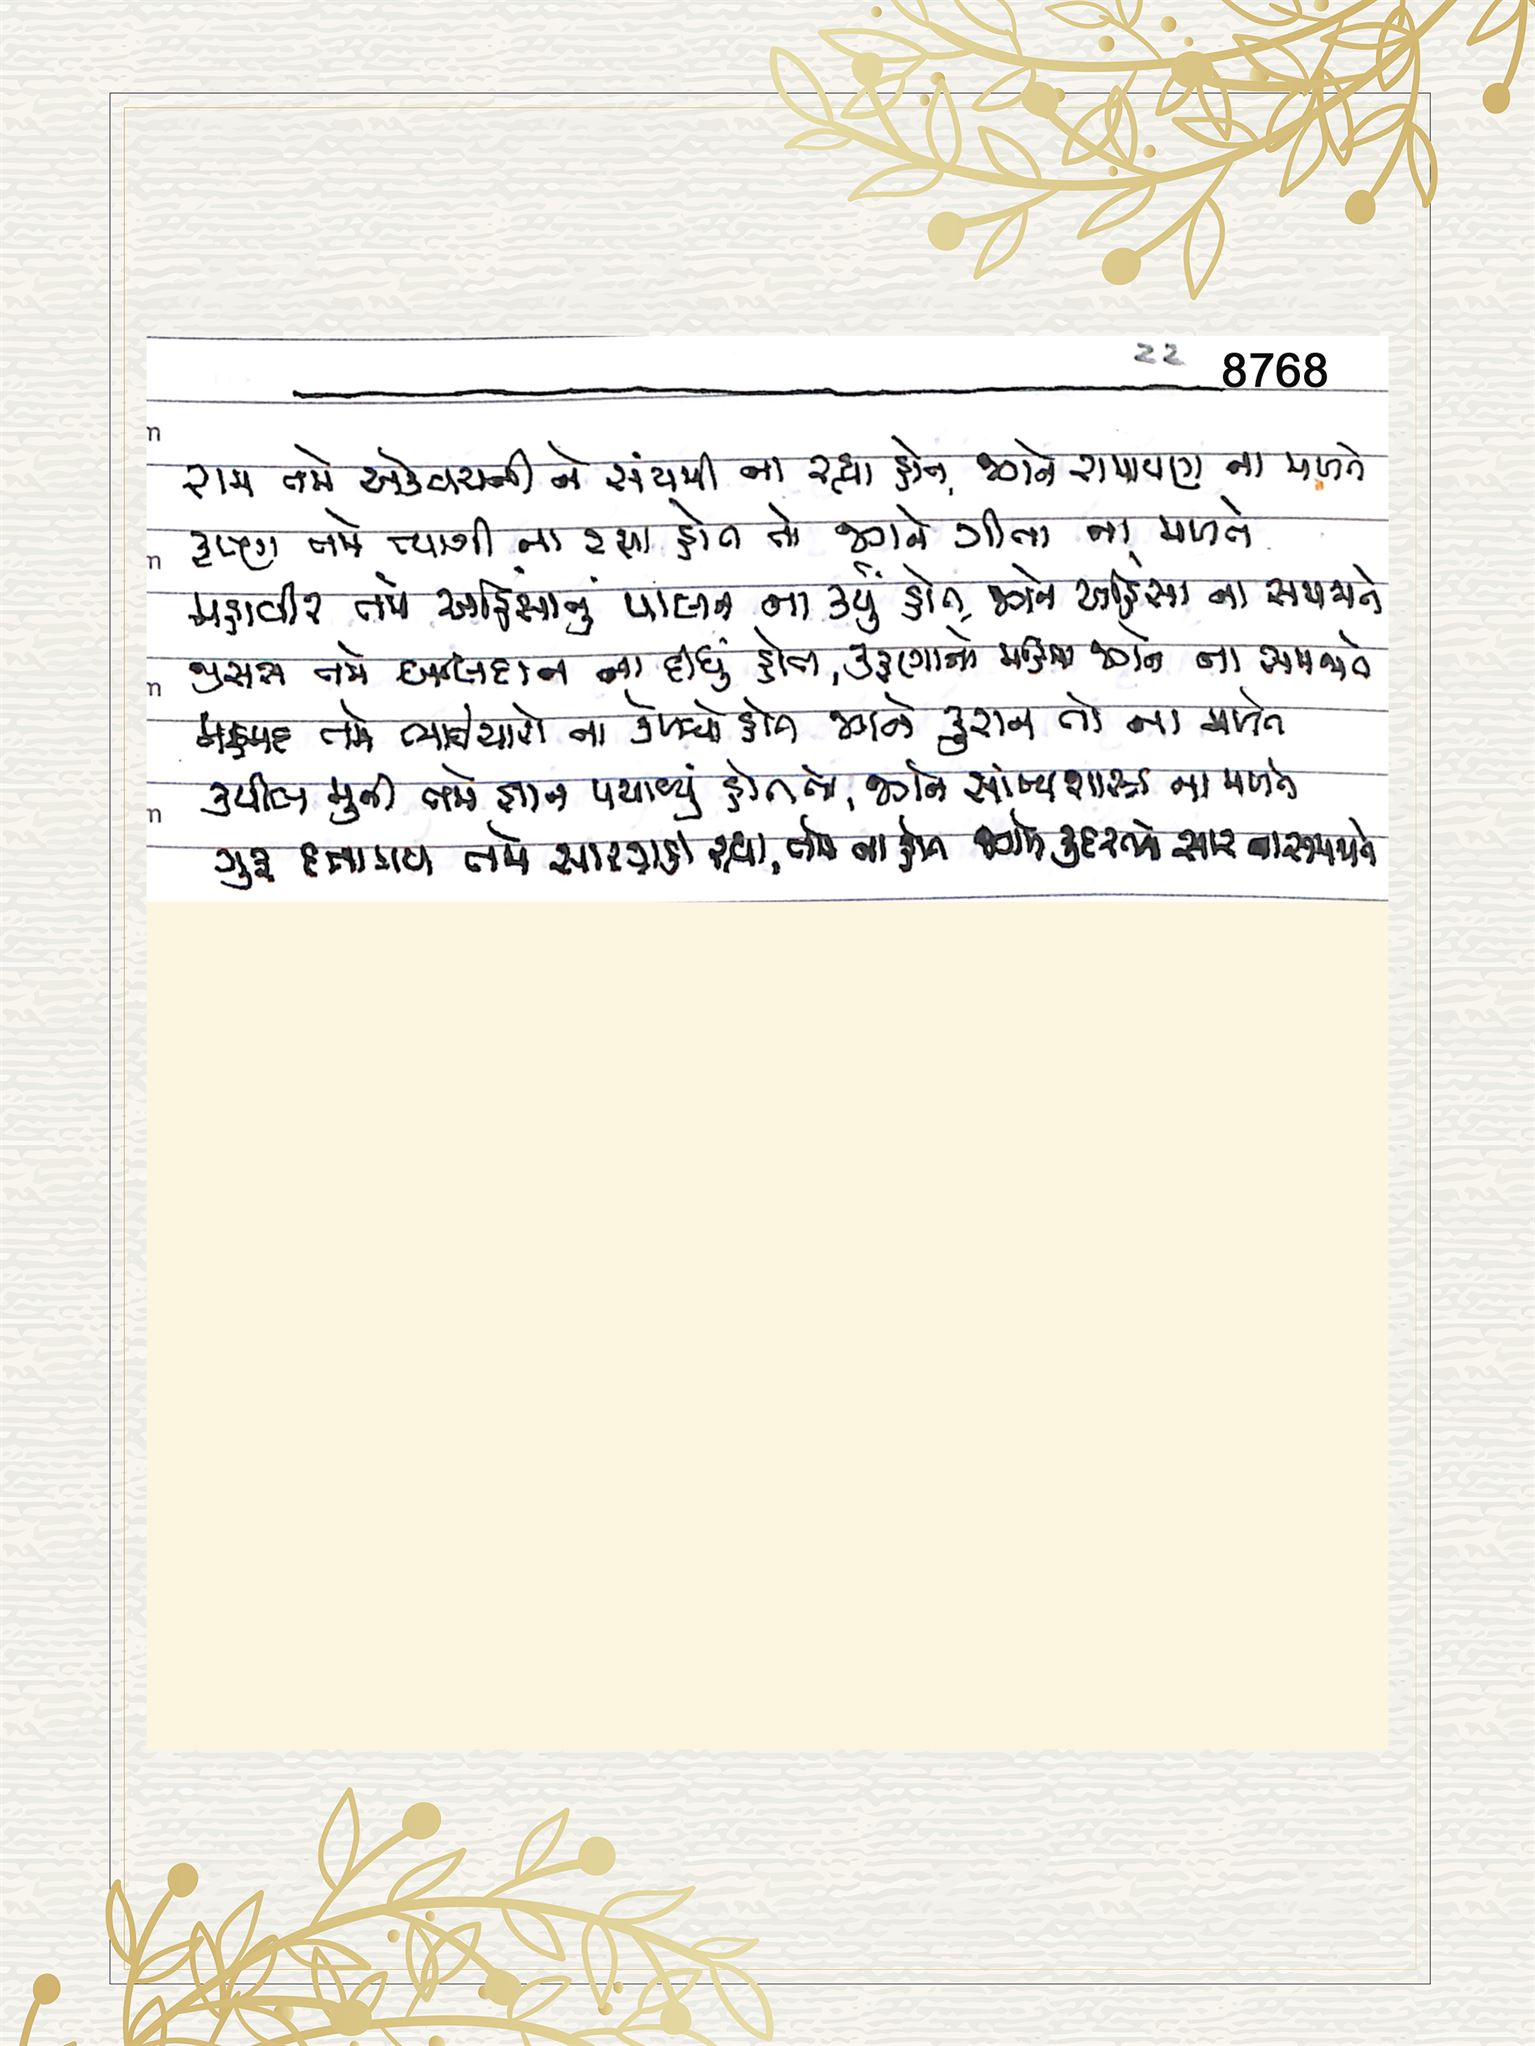 22 8768
રામ તમે એકવચની ને સંયમી ના રહ્યા હોત, જગને રામાયણ ના મળતે
કૃષ્ણ તમે ત્યાગી ના રહ્યા હોત તો જગને ગીતા ના મળતે
મહાવીર તમે અહિંસાનું પાલન ના કર્યું હોત, જગને અહિંસા ના સમજાતે
જીસસ તમે બલિદાન ના દીધું હોત, કરૂણાનો મહિમા જગને ના સમજાતે
મહમદ તમે ના હોત જગને કુરાન તો ના મળતે
કપીલ મુની તમે જ્ઞાન પચાવ્યું હોત તો, જગને સાંખ્યશાસ્ત્ર ના મળતે
ગુરૂ દત્તાત્રય તમે સારગ્રાહી રહ્યા, તમે ના હોત જગને કુદરતનો સાર ના સમજાતે